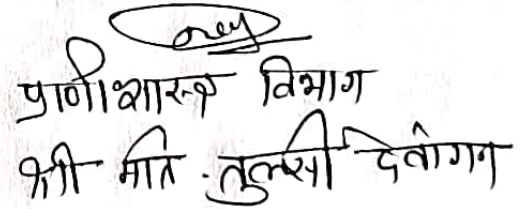 प्राणीशास्त्र विभाग
श्री मति . तुल्सी देवांगन